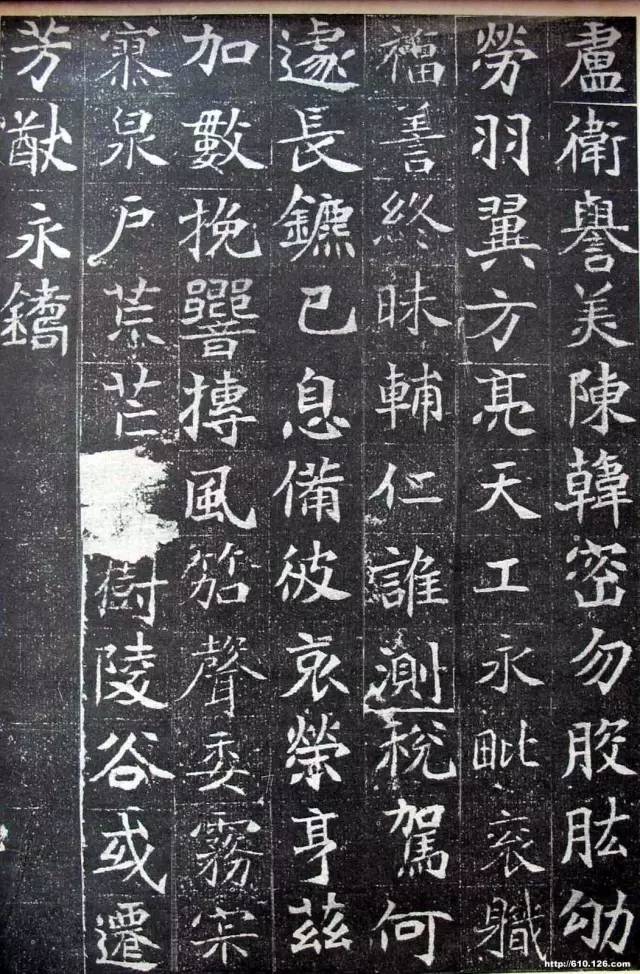 盧衛譽美陳韓密勿股肱劬
勞羽翼方亮天工永毗袞職
福善終昧輔仁誰測稅駕何
遽長鑣已息備彼哀榮亨茲
加數挽響摶風笳聲委霧
泉户荒芒樹陵谷或遷
芳猷永鑄
http://610.126.com